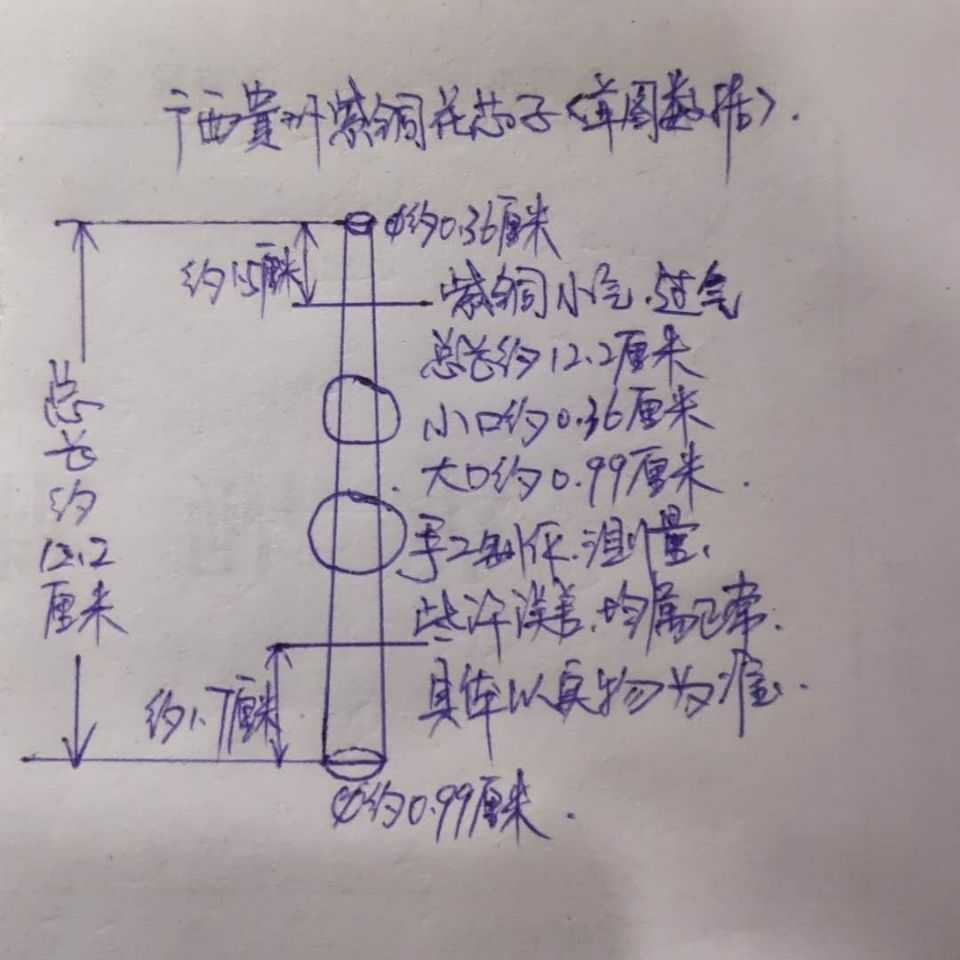 广西贵州紫铜花芯子<草图数据>.
φ约0.36厘米
约1.5厘米
紫铜小气.过气
总长约12.2厘米
小口约0.36厘米
大口约0.99厘米.
手工制作.测量.
些许误差.均属正常.
具体以实物为准.
总长约12.2厘米
约1.7厘米
φ约0.99厘米.